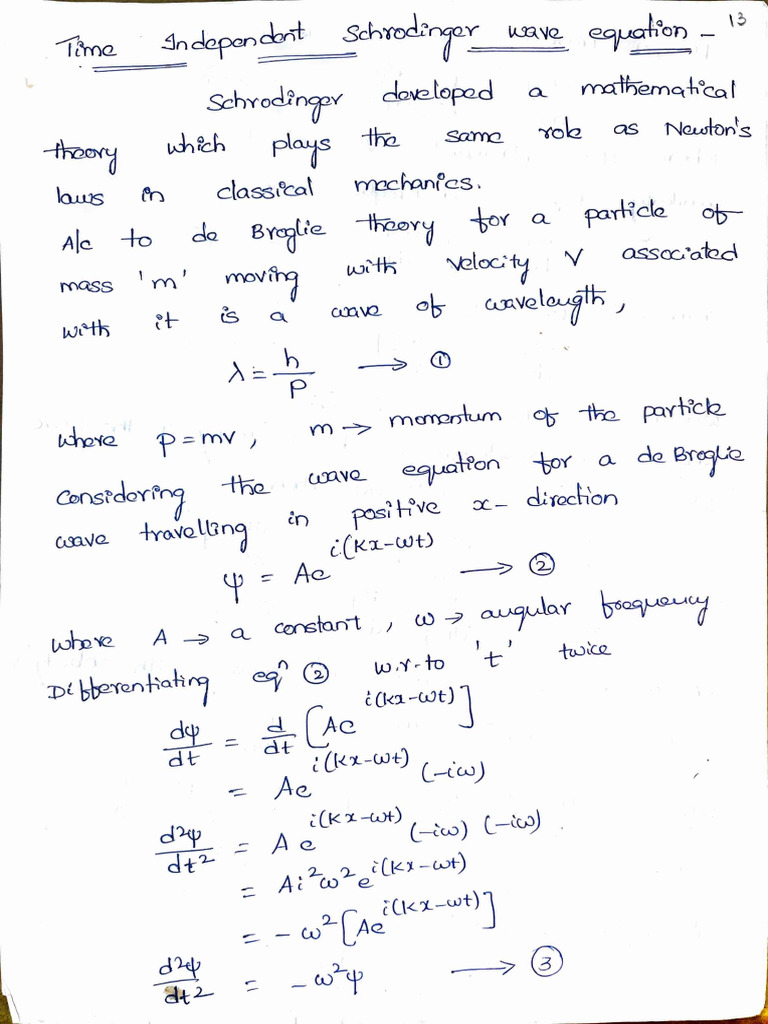 13
Time Independent Schrodinger wave equation -
Schrodinger developed a mathematical
theory which plays the same role as Newton's
laws in classical mechanics.
A/c to de Broglie theory for a particle of
mass 'm' moving with velocity V associated
with it is a wave of wavelength,
λ = h/p → ①
where p = mv, m → momentum of the particle
Considering the wave equation for a de Broglie
wave travelling in positive x- direction
ψ = Ae^{i(Kx-ωt)} → ②
where A → a constant, ω → angular frequency
Differentiating eqⁿ ② w.r.to 't' twice
dψ/dt = d/dt [Ae^{i(Kx-ωt)}]
= Ae^{i(Kx-ωt)} (-iω)
d²ψ/dt² = Ae^{i(Kx-ωt)} (-iω) (-iω)
= Ai²ω²e^{i(Kx-ωt)}
= -ω² [Ae^{i(Kx-ωt)}]
d²ψ/dt² = -ω²ψ → ③